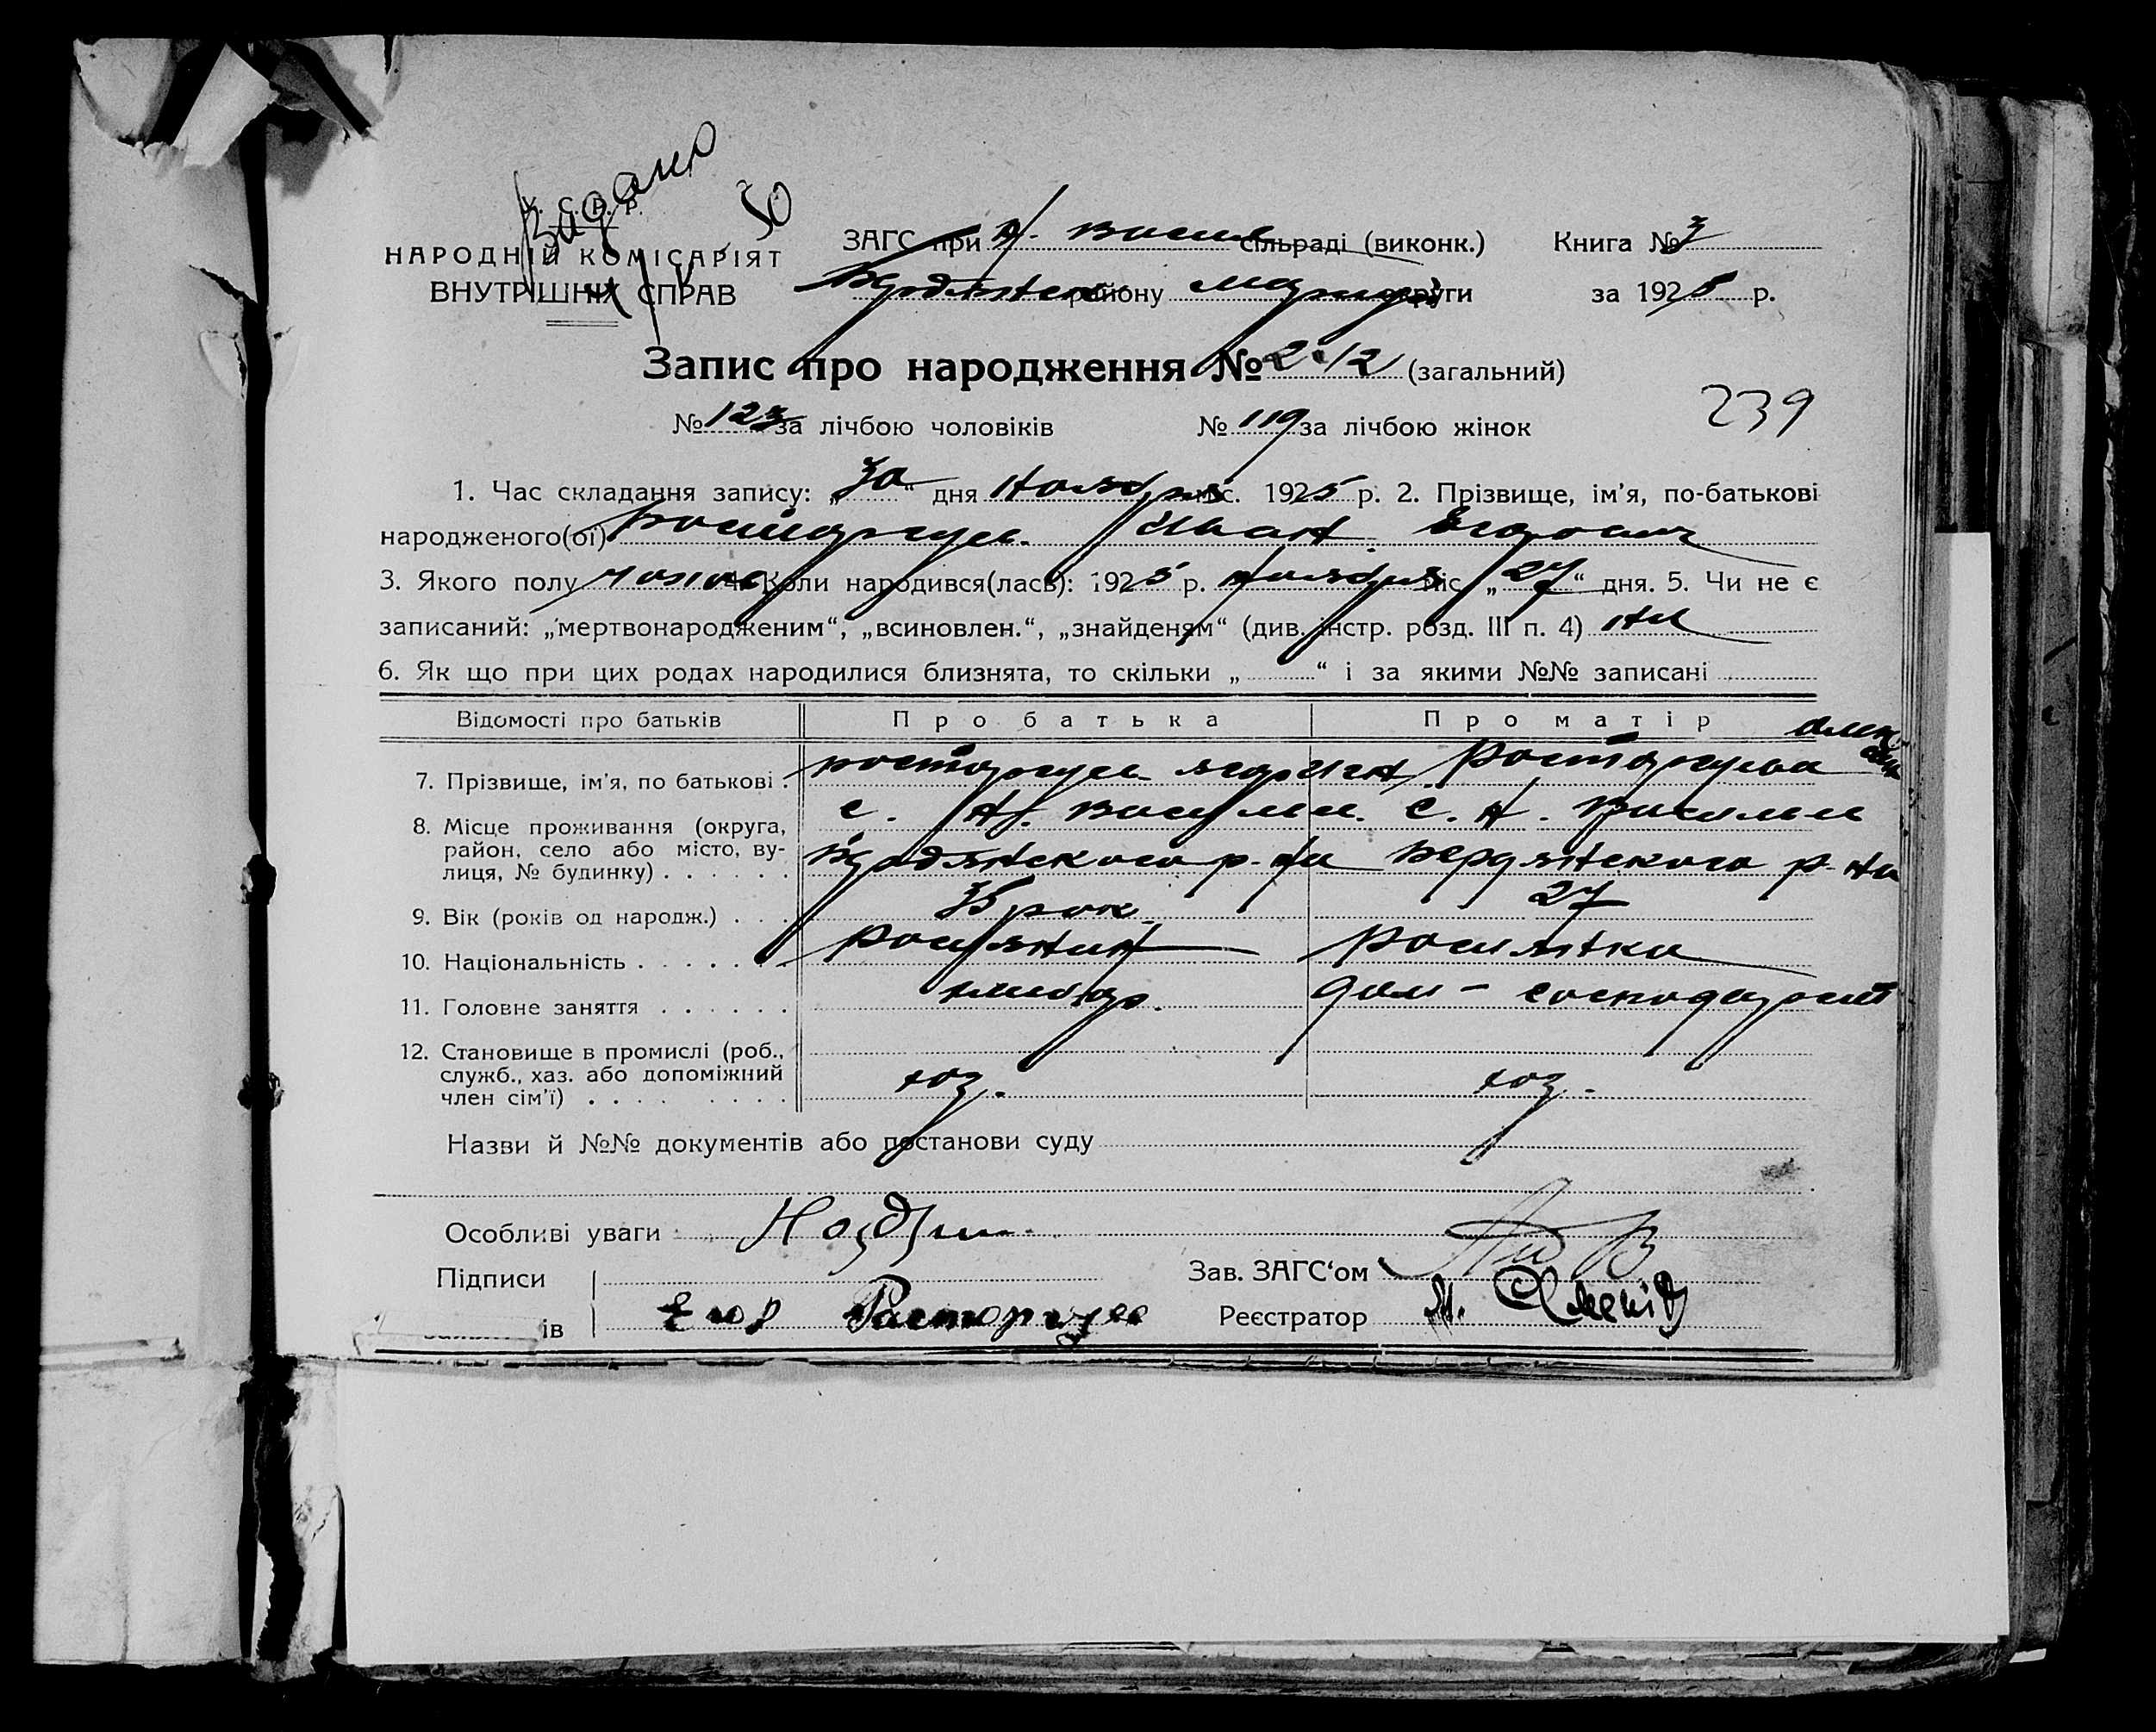 Видано
50
У. С. Р. Р.
НАРОДНІЙ КОМІСАРІЯТ
ВНУТРІШНІХ СПРАВ
ЗАГС при Н. Васил сільраді (виконк.) Книга № 3
Бердянськ району Маріуп округи за 1925 р.
Запис про народження № 242 (загальний)
239
№ 123 за лічбою чоловіків № 119 за лічбою жінок
1. Час складання запису: „30“ дня Ноября міс. 1925 р. 2. Прізвище, ім'я, по-батькові
народженого(ої) Ростаргуев Иван Егорович
3. Якого полу чолов 4. Коли народився(лась): 1925 р. Ноября міс. „27“ дня. 5. Чи не є
записаний: „мертвонародженим“, „всиновлен.“, „знайденям“ (див. інстр. розд. III п. 4) Ни
6. Як що при цих родах народилися близнята, то скільки „ “ і за якими №№ записані
Відомості про батьків Про батька Про матір
7. Прізвище, ім'я, по батькові . Ростаргуев Ростаргуева
8. Місце проживання (округа, район, село або місто, вулиця, № будинку) . . . . . . с. Н. Васильев. с. Н. Васильев
Бердянского р-на Бердянского р-на
9. Вік (років од народж.) . . . 35 рок. 27
10. Національність . . . . . . . Росиянин Росиянка
11. Головне заняття . . . . . . хлибор. дом-господарст
12. Становище в промислі (роб., служб., хаз. або допоміжний член сім'ї) . . . . . . . . хоз. хоз.
Назви й №№ документів або постанови суду
Особливі уваги
Підписи Зав. ЗАГС'ом
ів Егор Расторгуев Реєстратор